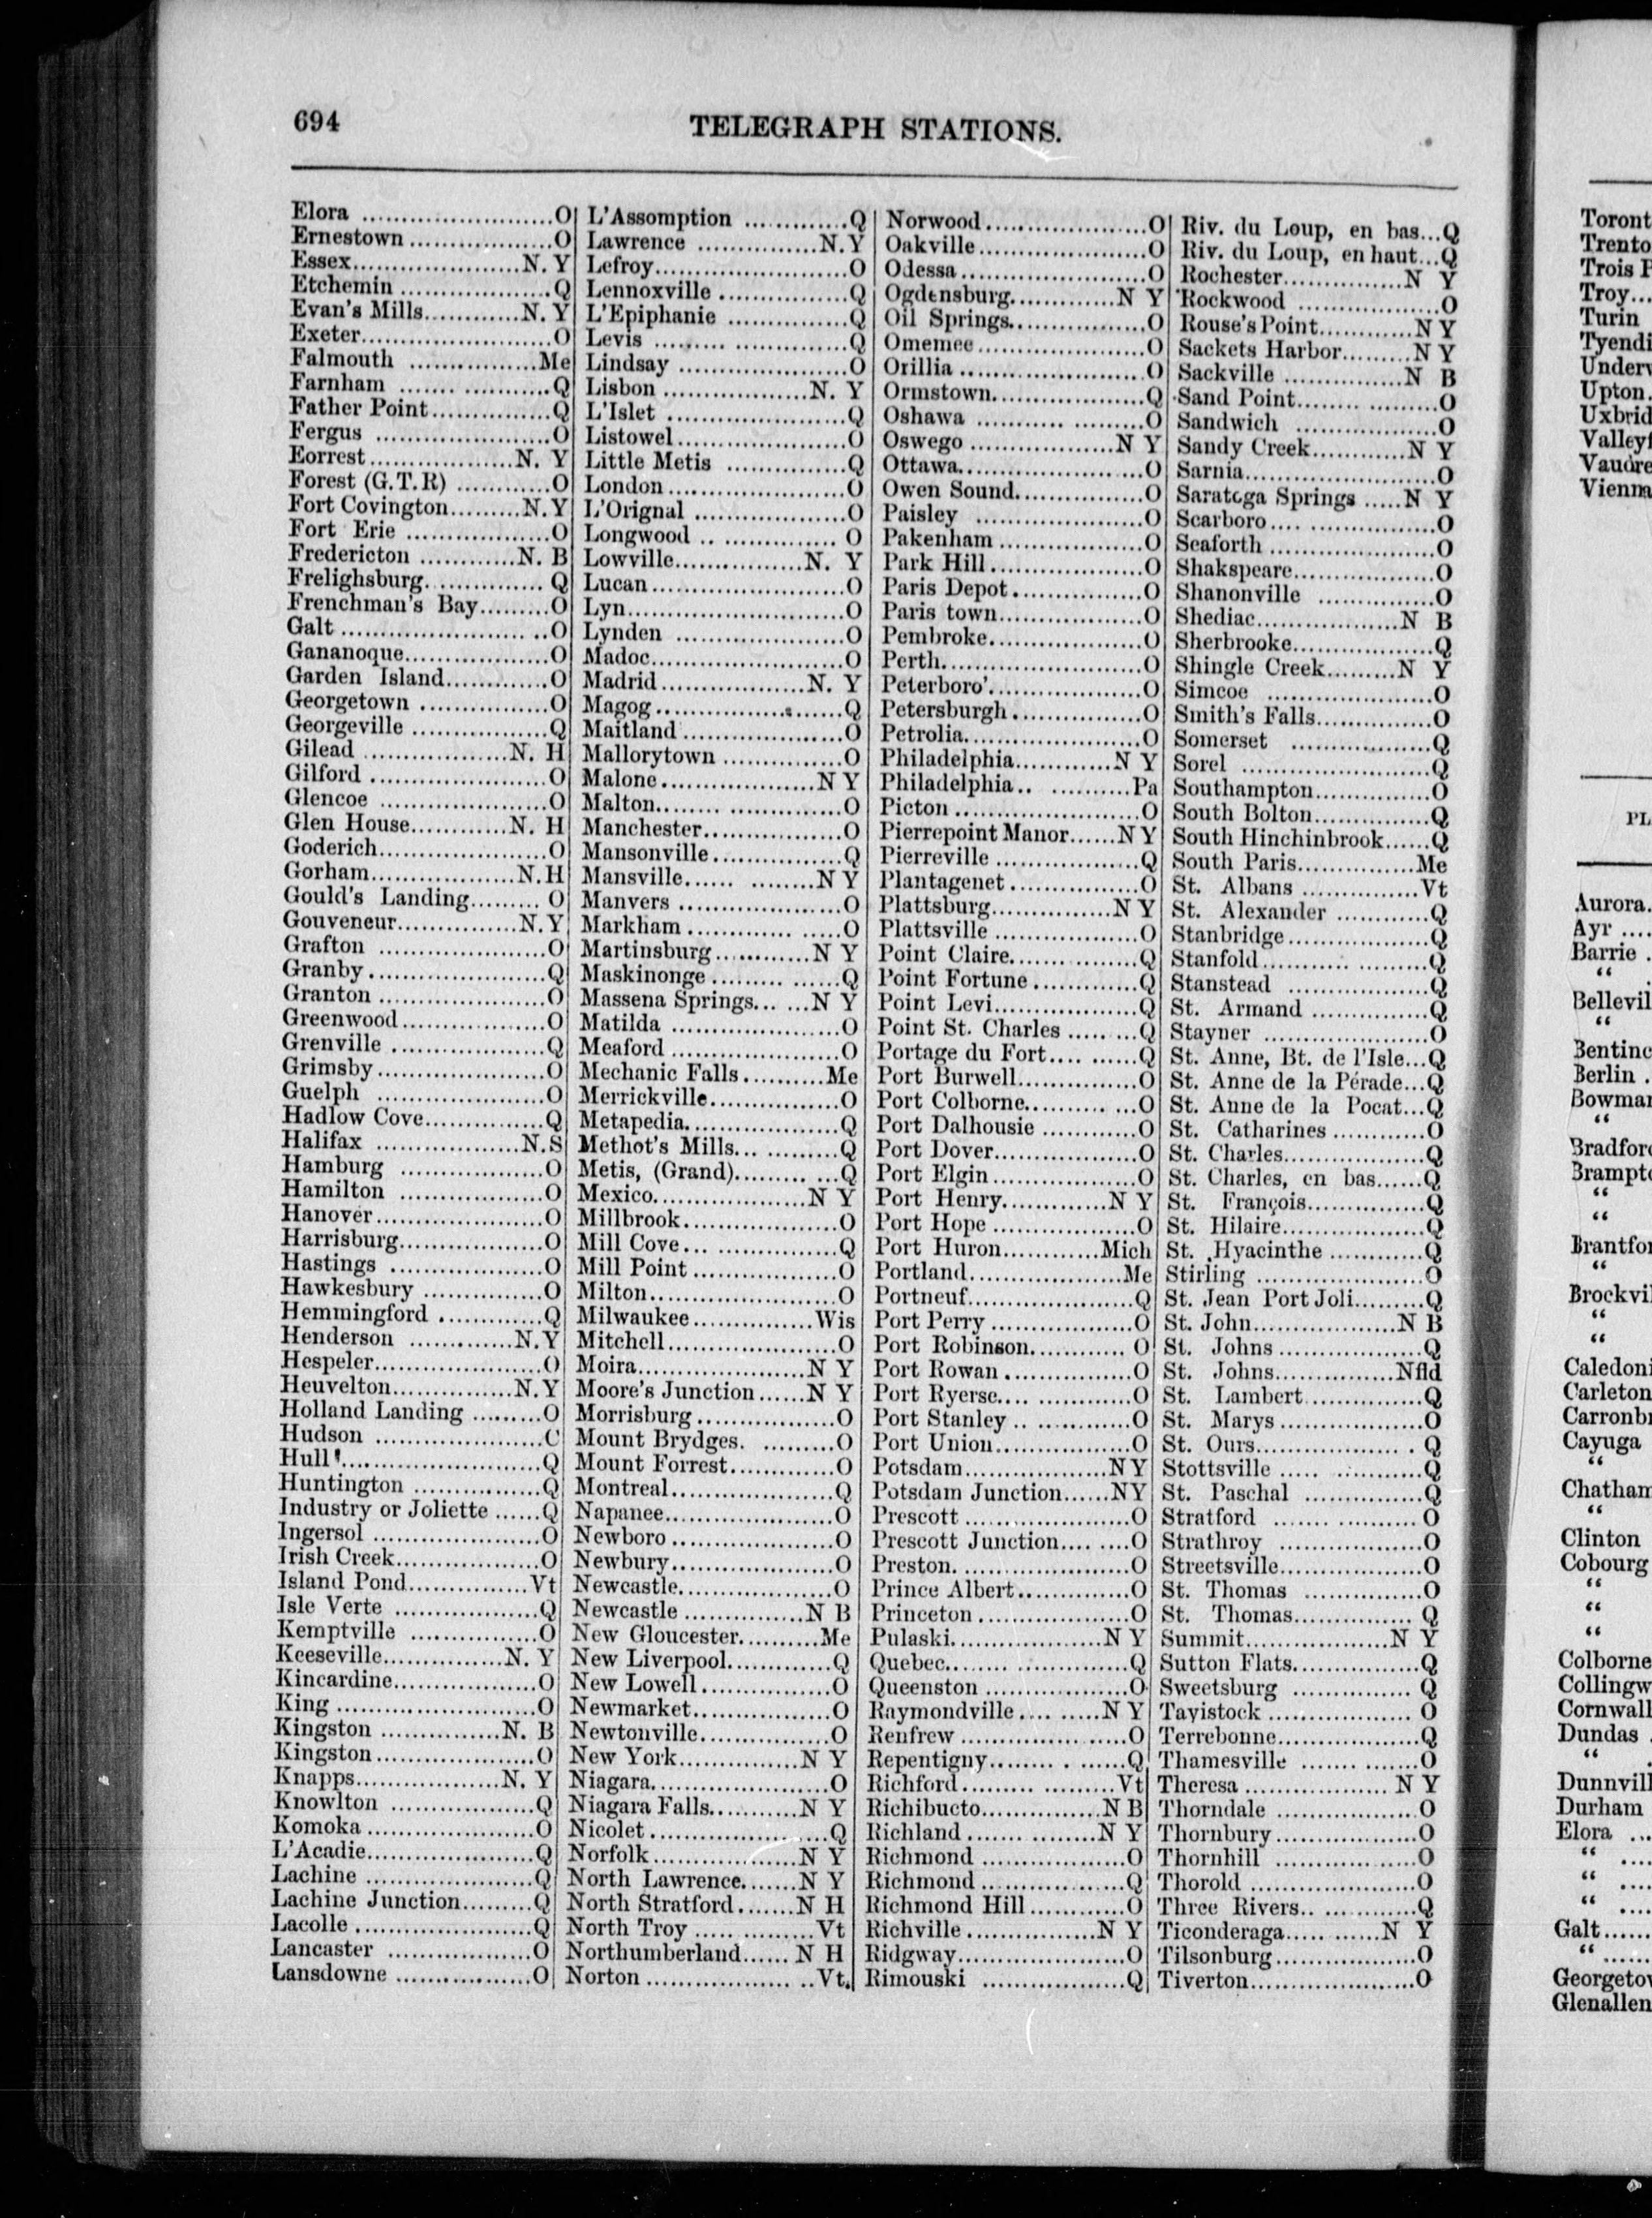 694
TELEGRAPH STATIONS.
Elora ........................O
Ernestown ..................O
Essex.....................N. Y
Etchemin ...................Q
Evan's Mills............N. Y
Exeter........................O
Falmouth ................Me
Farnham ...................Q
Father Point...............Q
Fergus ......................O
Eorrest..................N. Y
Forest (G.T.R) ............O
Fort Covington.........N.Y
Fort Erie ..................O
Fredericton ............N. B
Frelighsburg...............Q
Frenchman's Bay.........O
Galt ...........................O
Gananoque..................O
Garden Island.............O
Georgetown ................O
Georgeville .................Q
Gilead ...................N. H
Gilford .......................O
Glencoe ......................O
Glen House............N. H
Goderich......................O
Gorham..................N.H
Gould's Landing......... O
Gouveneur...............N.Y
Grafton ......................O
Granby.......................Q
Granton ......................O
Greenwood...................O
Grenville ....................Q
Grimsby......................O
Guelph ......................O
Hadlow Cove...............Q
Halifax ...................N.S
Hamburg ...................O
Hamilton ...................O
Hanover......................O
Harrisburg...................O
Hastings ....................O
Hawkesbury ...............O
Hemmingford .............Q
Henderson .............N.Y
Hespeler......................O
Heuvelton...............N.Y
Holland Landing .........O
Hudson ......................C
Hull'..........................Q
Huntington ................Q
Industry or Joliette ......Q
Ingersol ......................O
Irish Creek..................O
Island Pond...............Vt
Isle Verte ...................Q
Kemptville ................O
Keeseville...............N. Y
Kincardine..................O
King ..........................O
Kingston ...............N. B
Kingston.....................O
Knapps..................N. Y
Knowlton ...................Q
Komoka ......................O
L'Acadie......................Q
Lachine ......................Q
Lachine Junction.........Q
Lacolle .......................Q
Lancaster ...................O
Lansdowne .................O
L'Assomption .............Q
Lawrence ...............N.Y
Lefroy.........................O
Lennoxville ................Q
L'Epiphanie ...............Q
Levis .........................Q
Lindsay ......................O
Lisbon ..................N. Y
L'Islet .......................Q
Listowel......................O
Little Metis ...............Q
London .......................O
L'Orignal ...................O
Longwood .. .............. O
Lowville................N. Y
Lucan.........................O
Lyn............................O
Lynden ......................O
Madoc.........................O
Madrid..................N. Y
Magog ........................Q
Maitland .....................O
Mallorytown ...............O
Malone...................N Y
Malton........................O
Manchester..................O
Mansonville................Q
Mansville...... .........N Y
Manvers .....................O
Markham ...................O
Martinsburg............N Y
Maskinonge ................Q
Massena Springs... ...N Y
Matilda ......................O
Meaford ......................O
Mechanic Falls..........Me
Merrickville................O
Metapedia...................Q
Methot's Mills.............Q
Metis, (Grand).............Q
Mexico...................N Y
Millbrook....................O
Mill Cove...................Q
Mill Point ..................O
Milton........................O
Milwaukee...............Wis
Mitchell......................O
Moira.....................N Y
Moore's Junction......N Y
Morrisburg ..................O
Mount Brydges. .........O
Mount Forrest.............O
Montreal.....................Q
Napanee.....................O
Newboro .....................O
Newbury.....................O
Newcastle...................O
Newcastle ...............N B
New Gloucester..........Me
New Liverpool.............Q
New Lowell.................O
Newmarket..................O
Newtonville.................O
New York...............N Y
Niagara......................O
Niagara Falls...........N Y
Nicolet .......................Q
Norfolk ..................N Y
North Lawrence.......N Y
North Stratford.......N H
North Troy ...............Vt
Northumberland...... N H
Norton .....................Vt.
Norwood.....................O
Oakville.....................O
Odessa .......................O
Ogdensburg............N Y
Oil Springs.................O
Omemee .....................O
Orillia .......................O
Ormstown...................Q
Oshawa ......................O
Oswego ..................N Y
Ottawa.......................O
Owen Sound................O
Paisley ......................O
Pakenham ..................O
Park Hill....................O
Paris Depot.................O
Paris town..................O
Pembroke....................O
Perth.........................O
Peterboro'...................O
Petersburgh ................O
Petrolia......................O
Philadelphia............N Y
Philadelphia.. ..........Pa
Picton ........................O
Pierrepoint Manor......N Y
Pierreville ..................Q
Plantagenet ................O
Plattsburg...............N Y
Plattsville ..................O
Point Claire................Q
Point Fortune .............Q
Point Levi..................Q
Point St. Charles .........Q
Portage du Fort...........Q
Port Burwell...............O
Port Colborne..............O
Port Dalhousie ............O
Port Dover..................O
Port Elgin ..................O
Port Henry.............N Y
Port Hope ..................O
Port Huron............Mich
Portland...................Me
Portneuf.....................Q
Port Perry ..................O
Port Robinson............ O
Port Rowan ................O
Port Ryerse.................O
Port Stanley ...............O
Port Union.................O
Potsdam..................N Y
Potsdam Junction......NY
Prescott .....................O
Prescott Junction.........O
Preston.......................O
Prince Albert..............O
Princeton ...................O
Pulaski...................N Y
Quebec.......................Q
Queenston ..................O
Raymondville ..........N Y
Renfrew .....................O
Repentigny.................Q
Richford...................Vt
Richibucto...............N B
Richland ................N Y
Richmond ..................O
Richmond ..................Q
Richmond Hill ............O
Richville ................N Y
Ridgway.....................O
Rimouski ...................Q
Riv. du Loup, en bas...Q
Riv. du Loup, en haut...Q
Rochester...............N Y
Rockwood ..................O
Rouse's Point............N Y
Sackets Harbor.........N Y
Sackville ...............N B
Sand Point..................O
Sandwich ..................O
Sandy Creek............N Y
Sarnia........................O
Saratoga Springs .....N Y
Scarboro.....................O
Seaforth .....................O
Shakspeare..................O
Shanonville ...............O
Shediac..................N B
Sherbrooke..................Q
Shingle Creek.........N Y
Simcoe ......................O
Smith's Falls...............O
Somerset ...................Q
Sorel ........................Q
Southampton...............O
South Bolton...............Q
South Hinchinbrook......Q
South Paris...............Me
St. Albans ...............Vt
St. Alexander ............Q
Stanbridge..................Q
Stanfold.....................Q
Stanstead ..................Q
St. Armand ...............Q
Stayner .....................O
St. Anne, Bt. de l'Isle...Q
St. Anne de la Pérade...Q
St. Anne de la Pocat...Q
St. Catharines ............O
St. Charles..................Q
St. Charles, en bas......Q
St. François...............Q
St. Hilaire..................Q
St. Hyacinthe ............Q
Stirling .....................O
St. Jean Port Joli.........Q
St. John..................N B
St. Johns ..................Q
St. Johns...............Nfld
St. Lambert...............Q
St. Marys ..................O
St. Ours.................... Q
Stottsville ..................Q
St. Paschal ...............Q
Stratford .................. O
Strathroy ..................O
Streetsville..................O
St. Thomas ...............O
St. Thomas............... Q
Summit..................N Y
Sutton Flats................Q
Sweetsburg ............... Q
Tayistock .................. O
Terrebonne..................Q
Thamesville ...............O
Theresa .................. N Y
Thorndale ..................O
Thornbury..................O
Thornhill ..................O
Thorold .....................O
Three Rivers...............Q
Ticonderaga............N Y
Tilsonburg..................O
Tiverton.....................O
Toront
Trento
Trois
Troy...
Turin
Tyendi
Underw
Upton.
Uxbrid
Valleyf
Vaudre
Vienna
PL
Aurora.
Ayr ....
Barrie .
“
Bellevil
“
Bentinc
Berlin .
Bowmar
“
Bradford
Brampto
“
“
Brantfor
“
Brockvil
“
“
Caledoni
Carleton
Carronbr
Cayuga
“
Chatham
“
Clinton
Cobourg
“
“
“
Colborne
Collingw
Cornwall
Dundas .
“
Dunnvill
Durham
Elora ...
“ ....
“ ....
“ ....
Galt......
“ ......
Georgetow
Glenallen